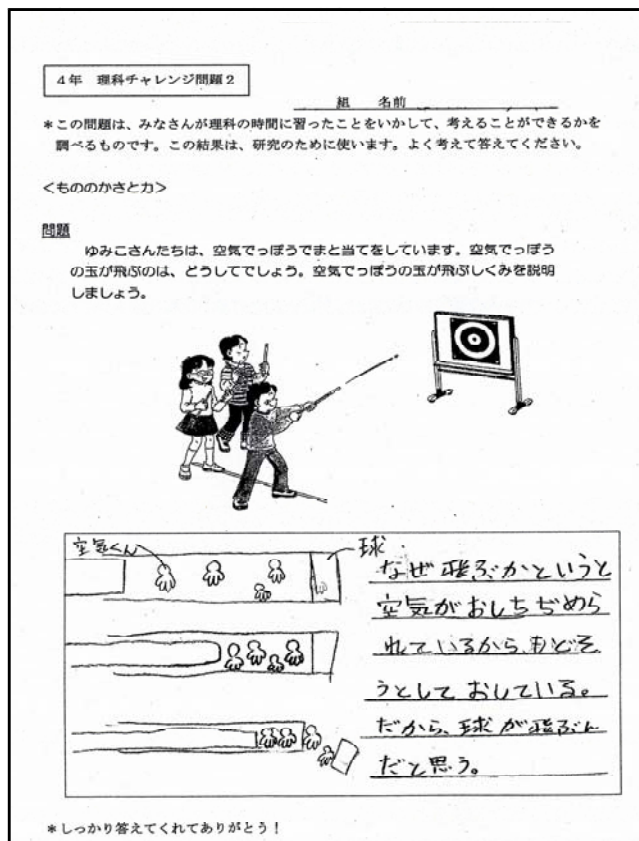 4年 理科チャレンジ問題2
組 名前
*この問題は、みなさんが理科の時間に習ったことをいかして、考えることができるかを
調べるものです。この結果は、研究のために使います。よく考えて答えてください。
<もののかさと力>
問題
ゆみこさんたちは、空気でっぽうでまと当てをしています。空気でっぽう
の玉が飛ぶのは、どうしてでしょう。空気でっぽうの玉が飛ぶしくみを説明
しましょう。
空気くん
球
なぜ飛ぶかというと
空気がおしちぢめら
れているから、もどそ
うとしておしている。
だから、球が飛ぶん
だと思う。
*しっかり答えてくれてありがとう!